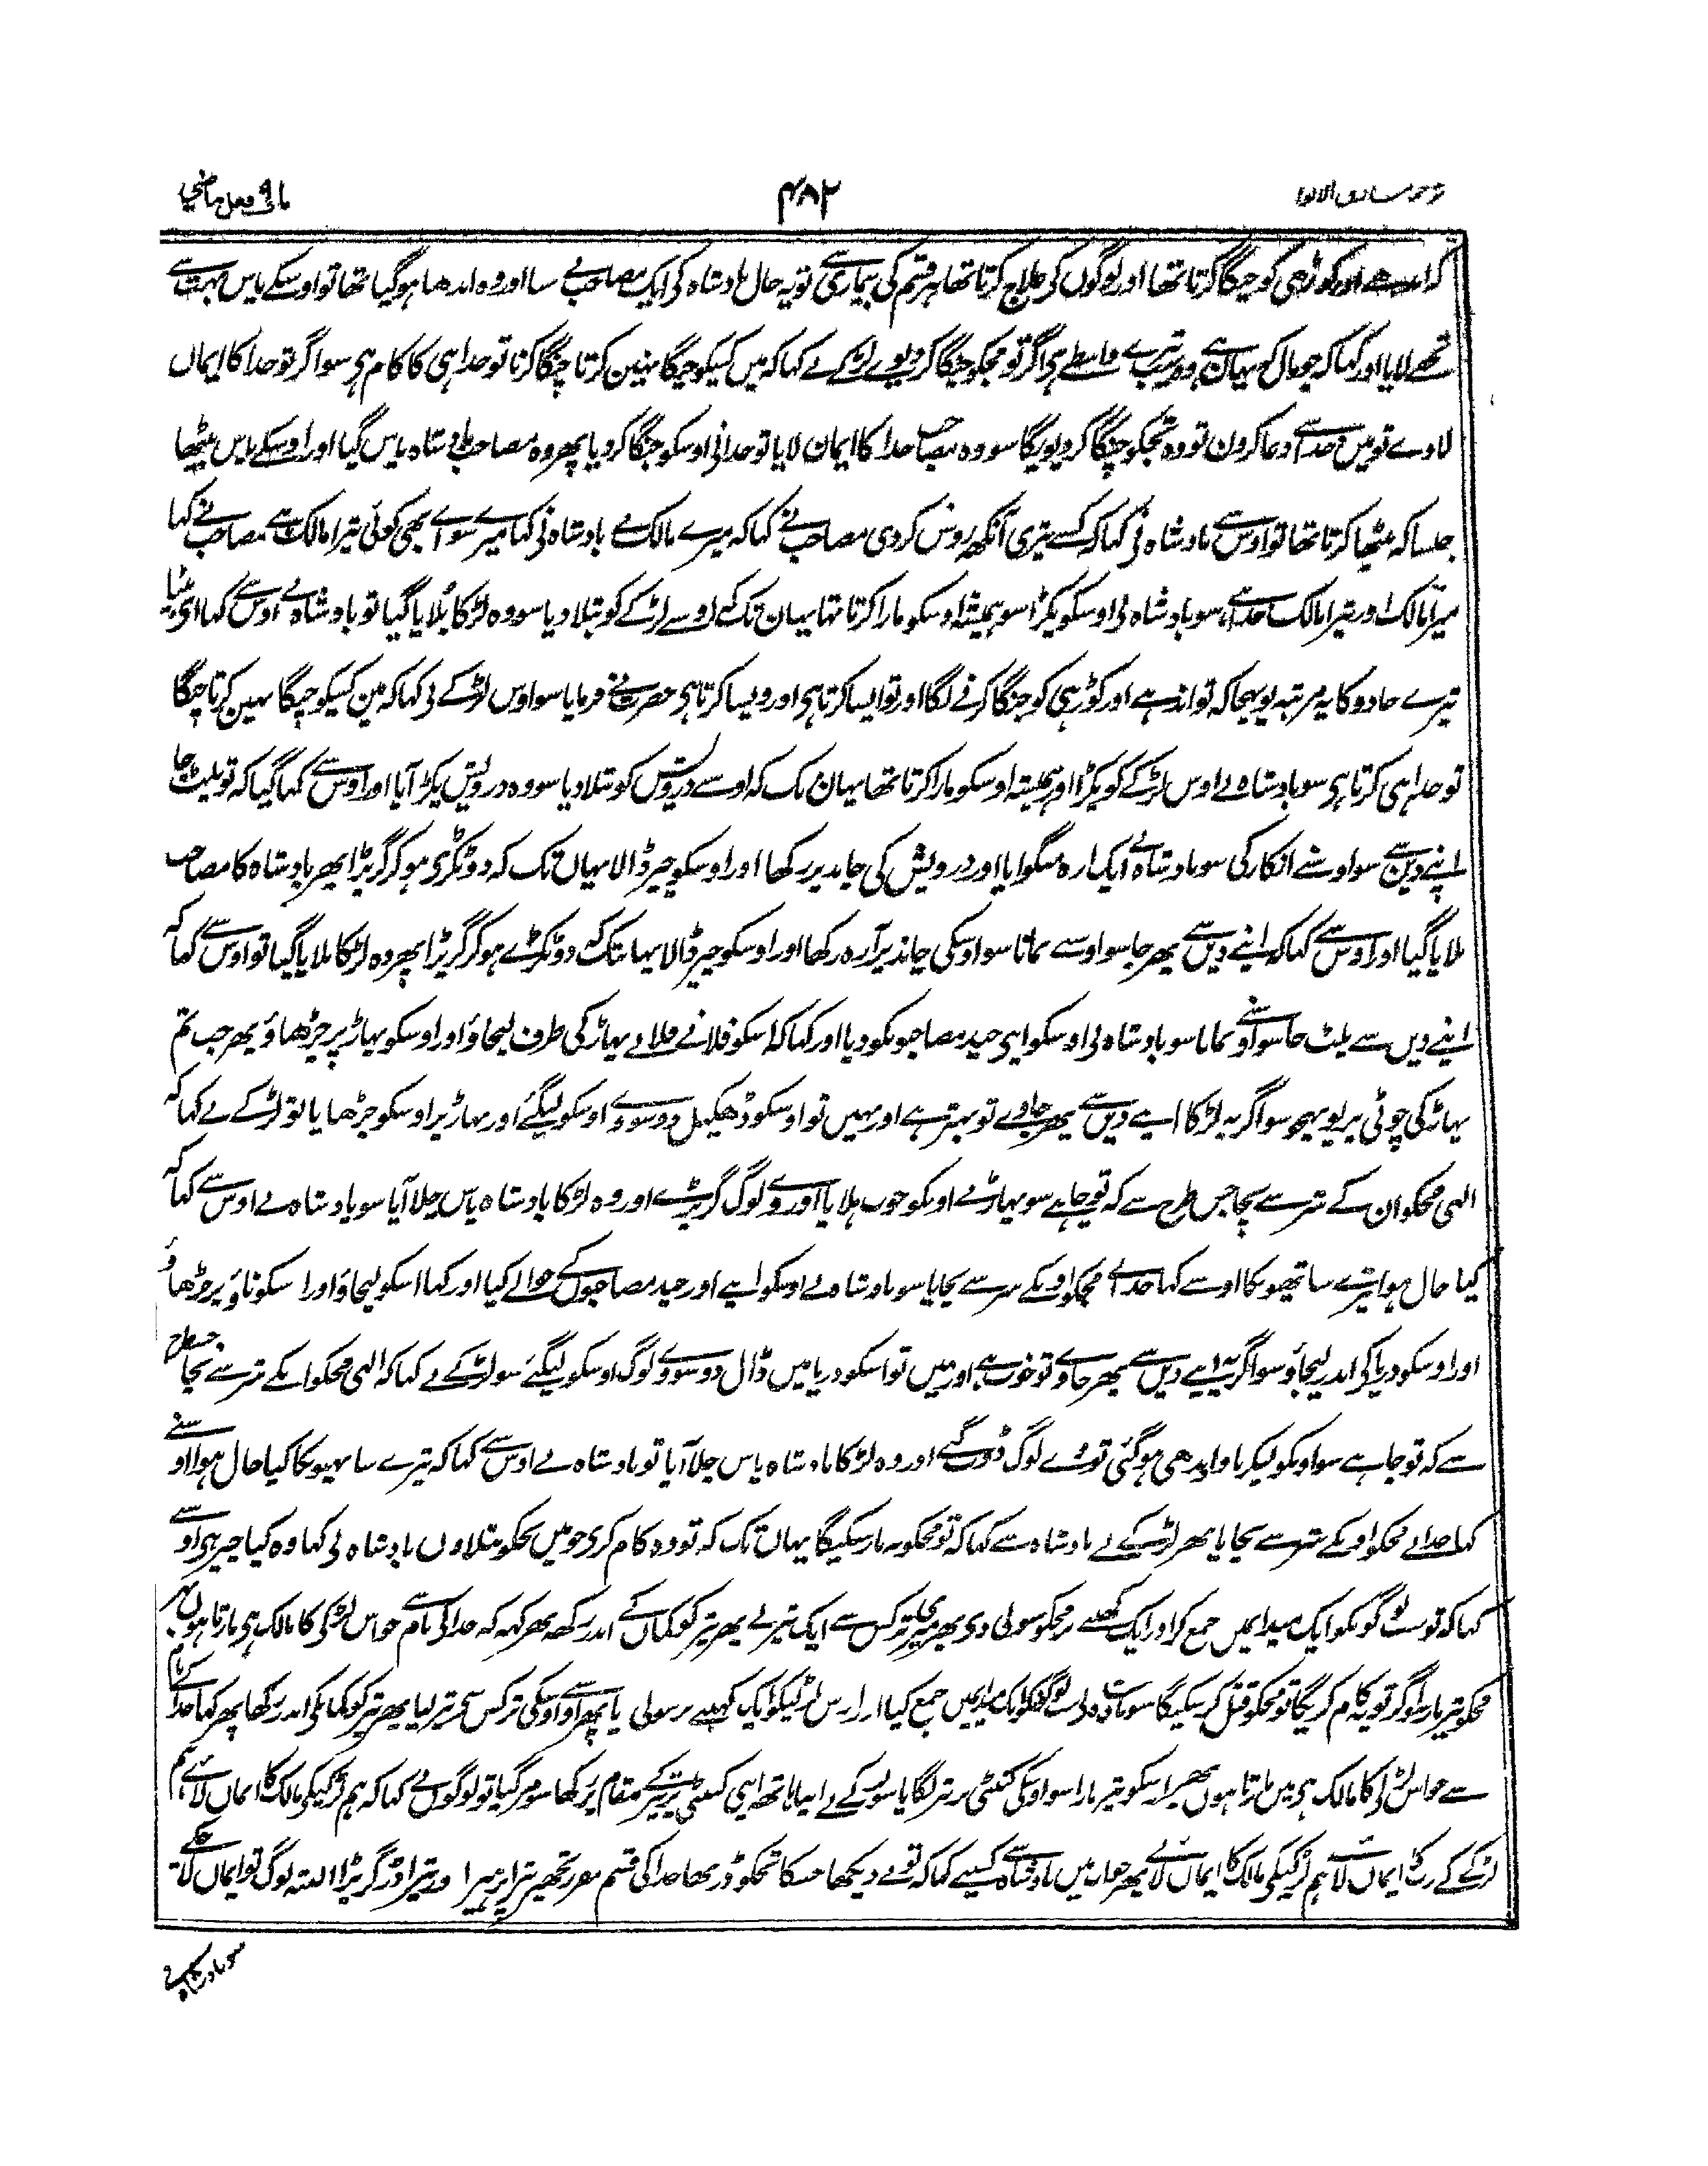 ترجمہ مشارق الانوار
۴۸۲
باب ۹ فعل ماضی
کہ اندھے اور کوڑھی کو چنگا کرتا تھا اور لوگوں کی علاج کرتا تھا ہر قسم کی بیماری سے تو یہ حال بادشاہ کی ایک مصاحب نے سنا اور وہ اندھا ہو گیا تھا تو اوسکے پاس بہت سے
تحفے لایا اور کہا کہ جو مال کہ یہان ہے وہ سب تیرے واسطے ہی اگر تو مجکو چنگا کر دیوے لڑکے نے کہا کہ میں کسیکو چنگا نہین کرتا چنگا کرنا تو خدا ہی کا کام ہی سو اگر تو خدا کا ایمان
لاوے تو میں خدا سے دعا کرون تو وہ تجکو چنگا کر دیویگا سو وہ مصاحب خدا کا ایمان لایا تو خدا نی اوسکو چنگا کر دیا پھر وہ مصاحب بادشاہ پاس گیا اور اوسکے پاس بیٹھا
جیسا کہ بیٹھا کرتا تھا تو اوس سے بادشاہ نی کہا کہ کسنے تیری آنکھ روشن کر دی مصاحب نے کہا کہ میرے مالک نے بادشاہ نی کہا میرے سواے بھی کوئی تیرا مالک ہے مصاحب نے کہا
میرا مالک اور تیرا مالک خدا ہے سو بادشاہ نی اوسکو پکڑا سو ہمیشہ اوسکو مارا کرتا تھا یہان تک کہ اوسنے لڑکے کو بتلا دیا سو وہ لڑکا بُلایا گیا تو بادشاہ نے اوس سے کہا ای بیٹا
تیرے جادو کا یہ مرتبہ پونہچا کہ تو اندھے اور کوڑھی کو چنگا کرنے لگا اور تو ایسا کرتا ہی اور ویسا کرتا ہی حضرت نے فرمایا سو اوس لڑکے نی کہا کہ مین کسیکو چنگا نہین کرتا چنگا
تو خدا ہی کرتا ہی سو بادشاہ نے اوس لڑکے کو پکڑا اور ہمیشہ اوسکو مارا کرتا تھا یہان تک کہ اوسنے درویش کو بتلا دیا سو وہ درویش پکڑ آیا اور اوس سے کہا گیا کہ تو پلٹ جا
اپنے دین سے سو اوسنے انکار کی سو بادشاہ نے ایک ارہ منگوایا اور درویش کی چاند پر رکھا اور اوسکو چیر ڈالا یہان تک کہ دو ٹکڑی ہو کر گر پڑا پھر بادشاہ کا مصاحب
بلایا گیا اور اوس سے کہا کہ اپنے دین سے پھر جا سو اوسنے نمانا سو اوسکی چاند پر آرہ رکھا اور اوسکو چیر ڈالا یہانتک کہ دو ٹکڑے ہو کر گر پڑا پھر وہ لڑکا بلایا گیا تو اوس سے کہا کہ
اپنے دین سے پلٹ جا سو اوسنے نمانا سو بادشاہ نی اوسکو اپنی چند مصاحبونکو دیا اور کہا کہ اسکو فلانے فلانے پہاڑ کی طرف لیجاؤ اور اوسکو پہاڑ پر چڑھاؤ پھر جب تم
پہاڑ کی چوٹی پر پونہچو سو اگر یہ لڑکا اپنے دین سے پھر جاوے تو بہتر ہے اور نہیں تو اوسکو ڈھکیل دو سو وے اوسکو لیگئے اور پہاڑ پر اوسکو چڑھایا تو لڑکے نے کہا کہ
الٰہی مجکو ان کے شر سے بچا جس طرح سے کہ تو چاہے سو پہاڑ نے اونکو خوب ہلایا اور وے لوگ گر پڑے اور وہ لڑکا بادشاہ پاس چلا آیا سو بادشاہ نے اوس سے کہا کہ
کیا حال ہوا تیرے ساتھیونکا اوسنے کہا خدا نے مجکو اونکے شر سے بچایا سو بادشاہ نے اوسکو اپنے اور چند مصاحبوں کے حوالے کیا اور کہا اسکو لیجاؤ اور اسکو ناؤ پر چڑھاؤ
اور اوسکو دریا کی اندر لیجاؤ سو اگر یہ اپنے دین سے پھر جاوے تو خوب ہے اور نہیں تو اسکو دریا میں ڈال دو سو وے لوگ اوسکو لیگئے سو لڑکے نے کہا کہ الٰہی مجکو انکے شر سے بچا جسطرح
سے کہ تو چاہے سو اونکو لیکر ناو اوندھی ہو گئی تو وے لوگ ڈوب گئے اور وہ لڑکا بادشاہ پاس چلا آیا تو بادشاہ نے اوس سے کہا کہ تیرے ساتھیونکا کیا حال ہوا اوسنے
کہا خدا نے مجکو اونکے شر سے بچایا پھر لڑکے نے بادشاہ سے کہا کہ تو مجکو نہ مار سکیگا یہاں تک کہ تو وہ کام کری جو میں تجکو بتلاوں بادشاہ نی کہا وہ کیا چیز ہی اوسنے
کہا کہ تو سب لوگونکو ایک میدانمیں جمع کر اور ایک کھنبے پر مجکو سولی دی پھر میری ترکس سے ایک تیر لے پھر تیر کو کمان کے اندر رکھ پھر کہہ کہ خدا کی نام سے جو اس لڑکی کا مالک ہی مارتا ہوں پھر
مجکو تیر مار سو اگر تو یہ کام کریگا تو مجکو قتل کر سکیگا سو بادشاہ نے سب لوگونکو ایک میدانمیں جمع کیا اور اس لڑکیکو ایک کھنبے پر سولی دیا پھر اوسکی ترکس سے تیر لیا پھر تیر کو کمانکی اندر رکھا پھر کہا خدا کے نام
سے جو اس لڑکی کا مالک ہی میں مارتا ہوں پھر اسکو تیر مارا سو اوسکی کنپٹی پر تیر لگا یا سو لڑکے نے اپنا ہاتھ اپنی کنپٹی پر تیر کے مقام پر رکھا سو مر گیا تو لوگوں نے کہا کہ ہم لڑکیکی مالک کا ایمان لائے ہم
لڑکے کے رب کا ایمان لائے ہم لڑکیکی مالک کا ایمان لائے پھر بادشاہ سے کسینے کہا کہ تو نے دیکھا جسکا تجکو ڈر تھا خدا کی قسم گر پڑا البتہ لوگ تو ایمان لا چکے
سو بادشاہ نے